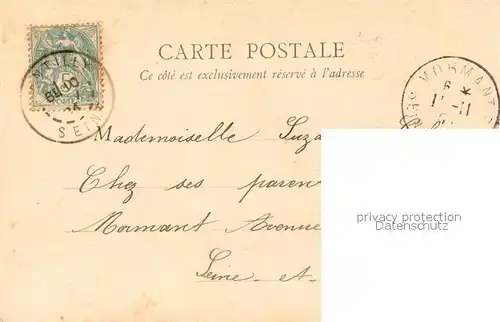 CARTE POSTALE
Ce côté est exclusivement réservé à l'adresse
MORMANT
SEINE
Mademoiselle Suza
Chez ses paren
Mormant Avenue
Seine - et -
privacy protection
Datenschutz